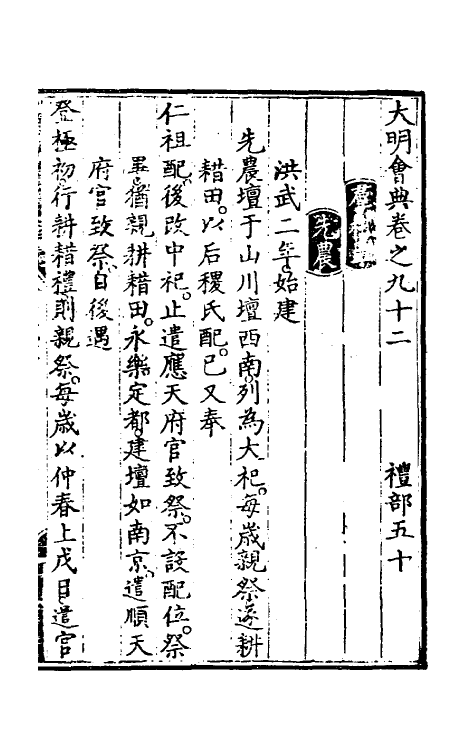 大明會典卷之九十二　禮部五十
先農
洪武二年始建
先農壇于山川壇西南列為大祀每歳親祭遂耕
耤田以后稷氏配已又奉
仁祖配後改中祀止遣應天府官致祭不設配位祭
畢猶親耕耤田永樂定都建壇如南京遣順天
府官致祭自後遇
登極初行耕耤禮則親祭每歳以仲春上戊日遣官